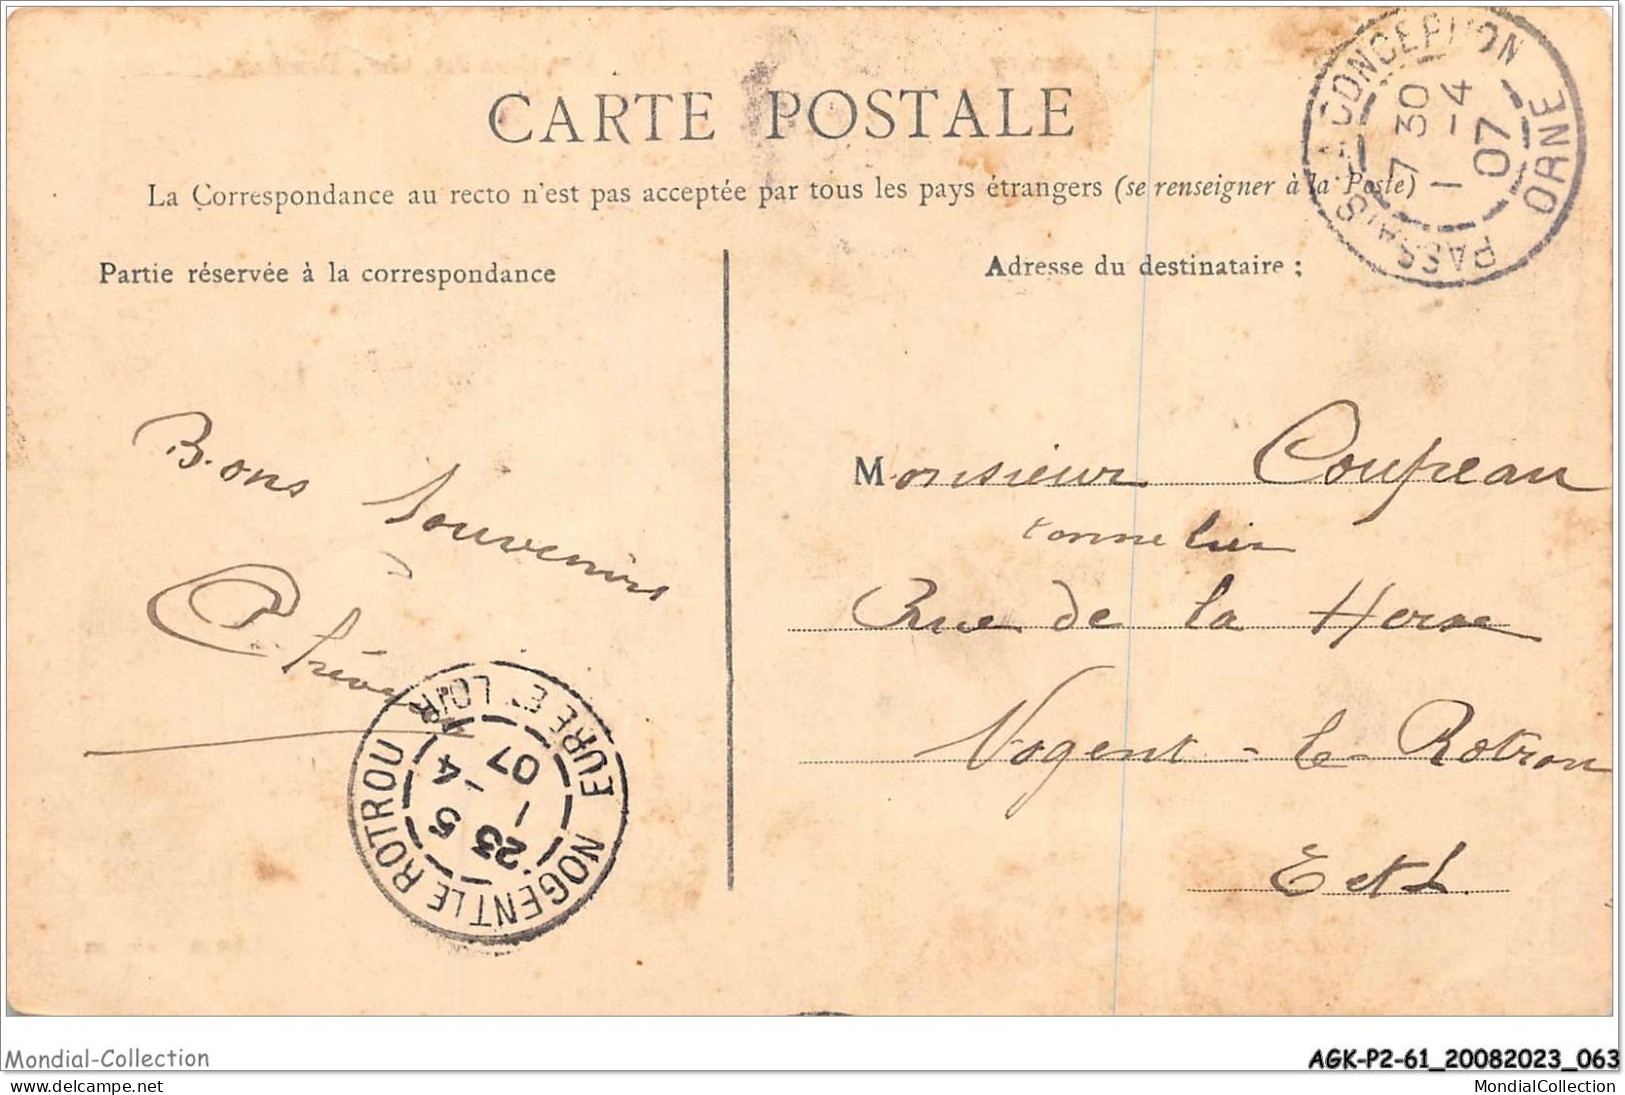 CARTE POSTALE
La Correspondance au recto n'est pas acceptée par tous les pays étrangers (se renseigner à la Poste)
PASSAIS LA CONCEPTION
ORNE
7 30
1 -4
07
Partie réservée à la correspondance
Adresse du destinataire :
Bons souvenirs
Monsieur Coupeau
tonnelier
Rue de la Herse
Nogent-le-Rotrou
E et L.
NOGENT LE ROTROU
EURE ET LOIR
23
5 -4
07
Mondial-Collection
AGK-P2-61_20082023_063
MondialCollection.net
MondialCollection